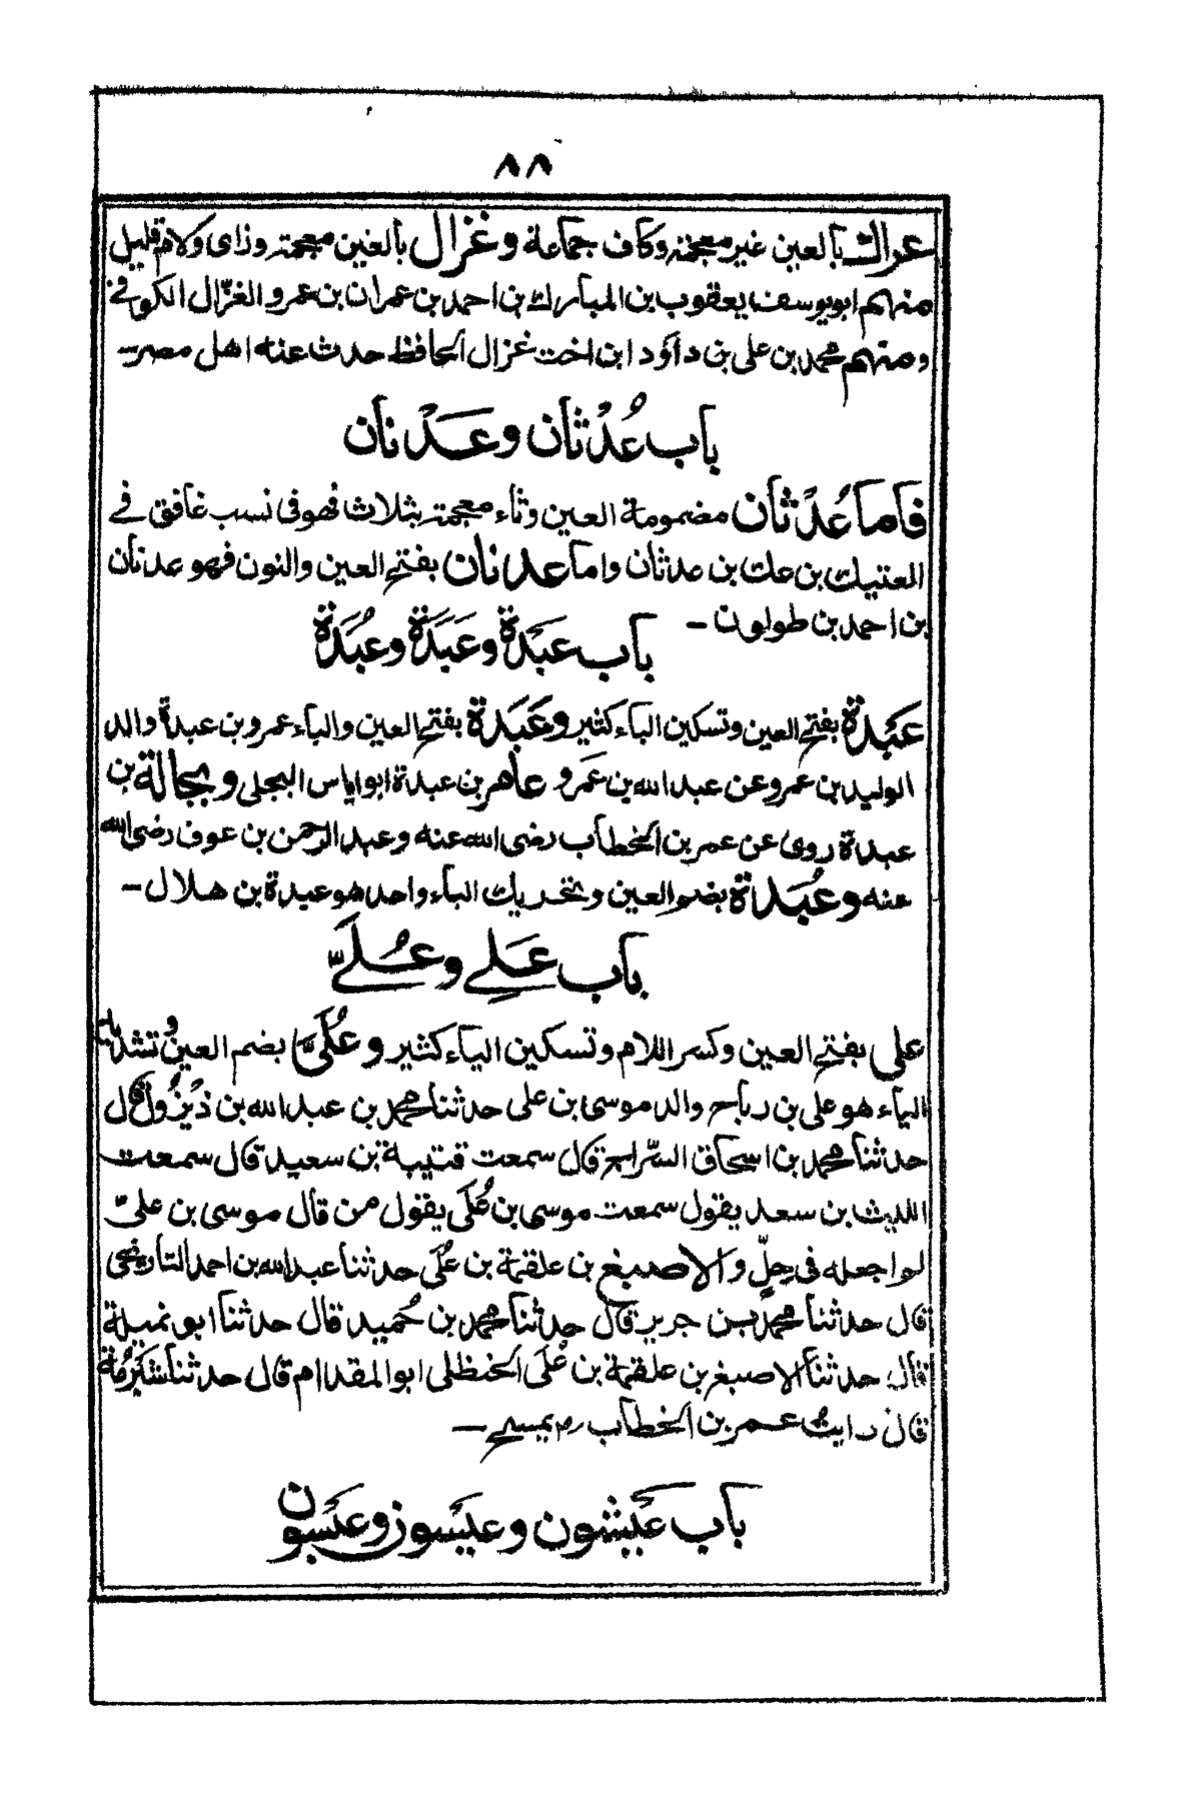 ٨٨
عراك بالعين غير معجمة وكاف جماعة وغزال بالغين معجمة وزاى ولام قليل
منهم ابويوسف يعقوب بن المبارك بن احمد بن عمران بن عمرو الغزّال الكوفى
ومنهم محمد بن على بن داؤد ابن اخت غزال الحافظ حدث عنه اهل مصر-
باب عُدْثان وعَدْنان
فاما عُدْثان مضمومة العين وثاء معجمة بثلاث فهو فى نسب غافق فى
العتيك بن عك بن عدثان واما عدنان بفتح العين والنون فهو عدنان
بن احمد بن طولون -
باب عَبْدَة وعَبَدَة وعُبَدَة
عَبْدَة بفتح العين وتسكين الباء كثير وعَبَدَة بفتح العين والباء عمرو بن عبدة والد
الوليد بن عمرو عن عبد الله بن عمرو عامر بن عبدة ابو اياس البجلى وبجالة بن
عبدة روى عن عمر بن الخطاب رضى الله عنه وعبد الرحمن بن عوف رضى الله
عنه وعُبَدَة بضم العين وبتحريك الباء واحد هو عبدة بن هلال -
باب عَلِى وعُلَىّ
على بفتح العين وكسر اللام وتسكين الياء كثير وعُلَىّ بضم العين وتشديد
الياء هو على بن رباح والد موسى بن على حدثنا محمد بن عبد الله بن قال
حدثنا محمد بن اسحاق السّراج قال سمعت قتيبة بن سعيد قال سمعت
الليث بن سعد يقول سمعت موسى بن عُلَى يقول من قال موسى بن علىّ
لم اجعله فى حِلّ والاصبغ بن علقمة بن عُلَى حدثنا عبد الله بن احمد التاريخى
قال حدثنا محمد بن جرير قال حدثنا محمد بن حُميد قال حدثنا ابو نميلة
قال حدثنا الاصبغ بن علقمة بن عُلَى الحنظلى ابو المقدام قال حدثنا
قال رايت عمر بن الخطاب رض يمسح -
باب عَيْشون وعَيْسون وعَبْسون